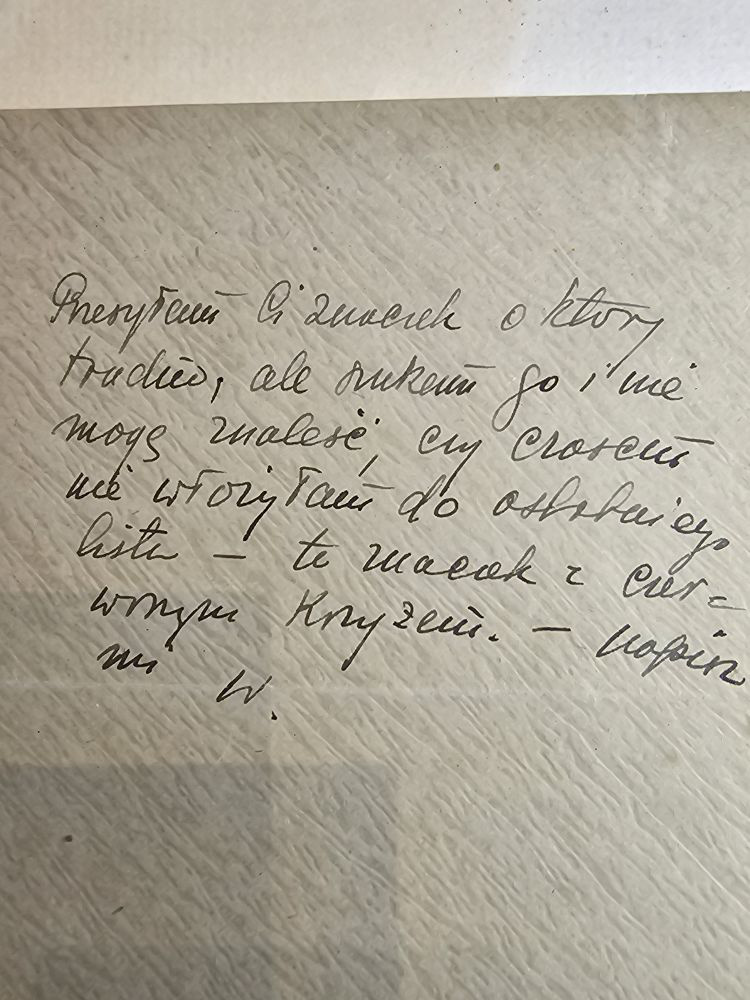 Przesyłam Ci znaczek o który
trudno, ale szukam go i nie
mogę znaleść, czy czasem
nie włożyłam do ostatniego
listu — te znaczek z czer=
wonym Krzyżem. — napisz
mi W.